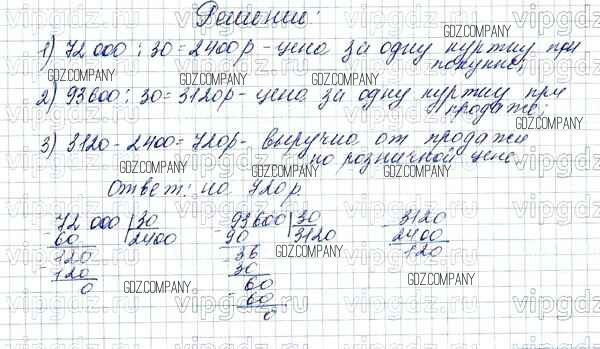 Решение:
1) 72 000 : 30 = 2400р - цена за одну куртку при
покупке;
2) 93600 : 30 = 3120р - цена за одну куртку при
продаже;
3) 3120 - 2400 = 720р - выручка от продажи
по розничной цене
Ответ: на 720р.
72 000 30
- 60 2400
120
- 120
0
93600 30
- 90 3120
36
- 30
60
- 60
0
- 3120
2400
120
GDZ.COMPANY
vipgdz.ru